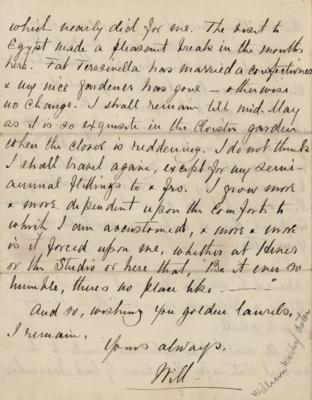 which nearly did for me. The visit to
Egypt made a pleasant break in the months
here. Fat Teresinella has married a confectioner
& my nice gardener has gone — otherwise
no change. I shall remain till mid. May
as it is so exquisite in the Cloister garden
when the clover is reddening. I do not think
I shall travel again, except for my semi-
annual flittings to & fro. I grow more
& more dependent upon the comforts to
which I am accustomed, & more & more
is it forced upon me, whether at
or the Studio or here that, "Be it ever so
humble, there's no place like — — —"
And so, wishing you golden laurels,
I remain,
Yours always,
Will
William